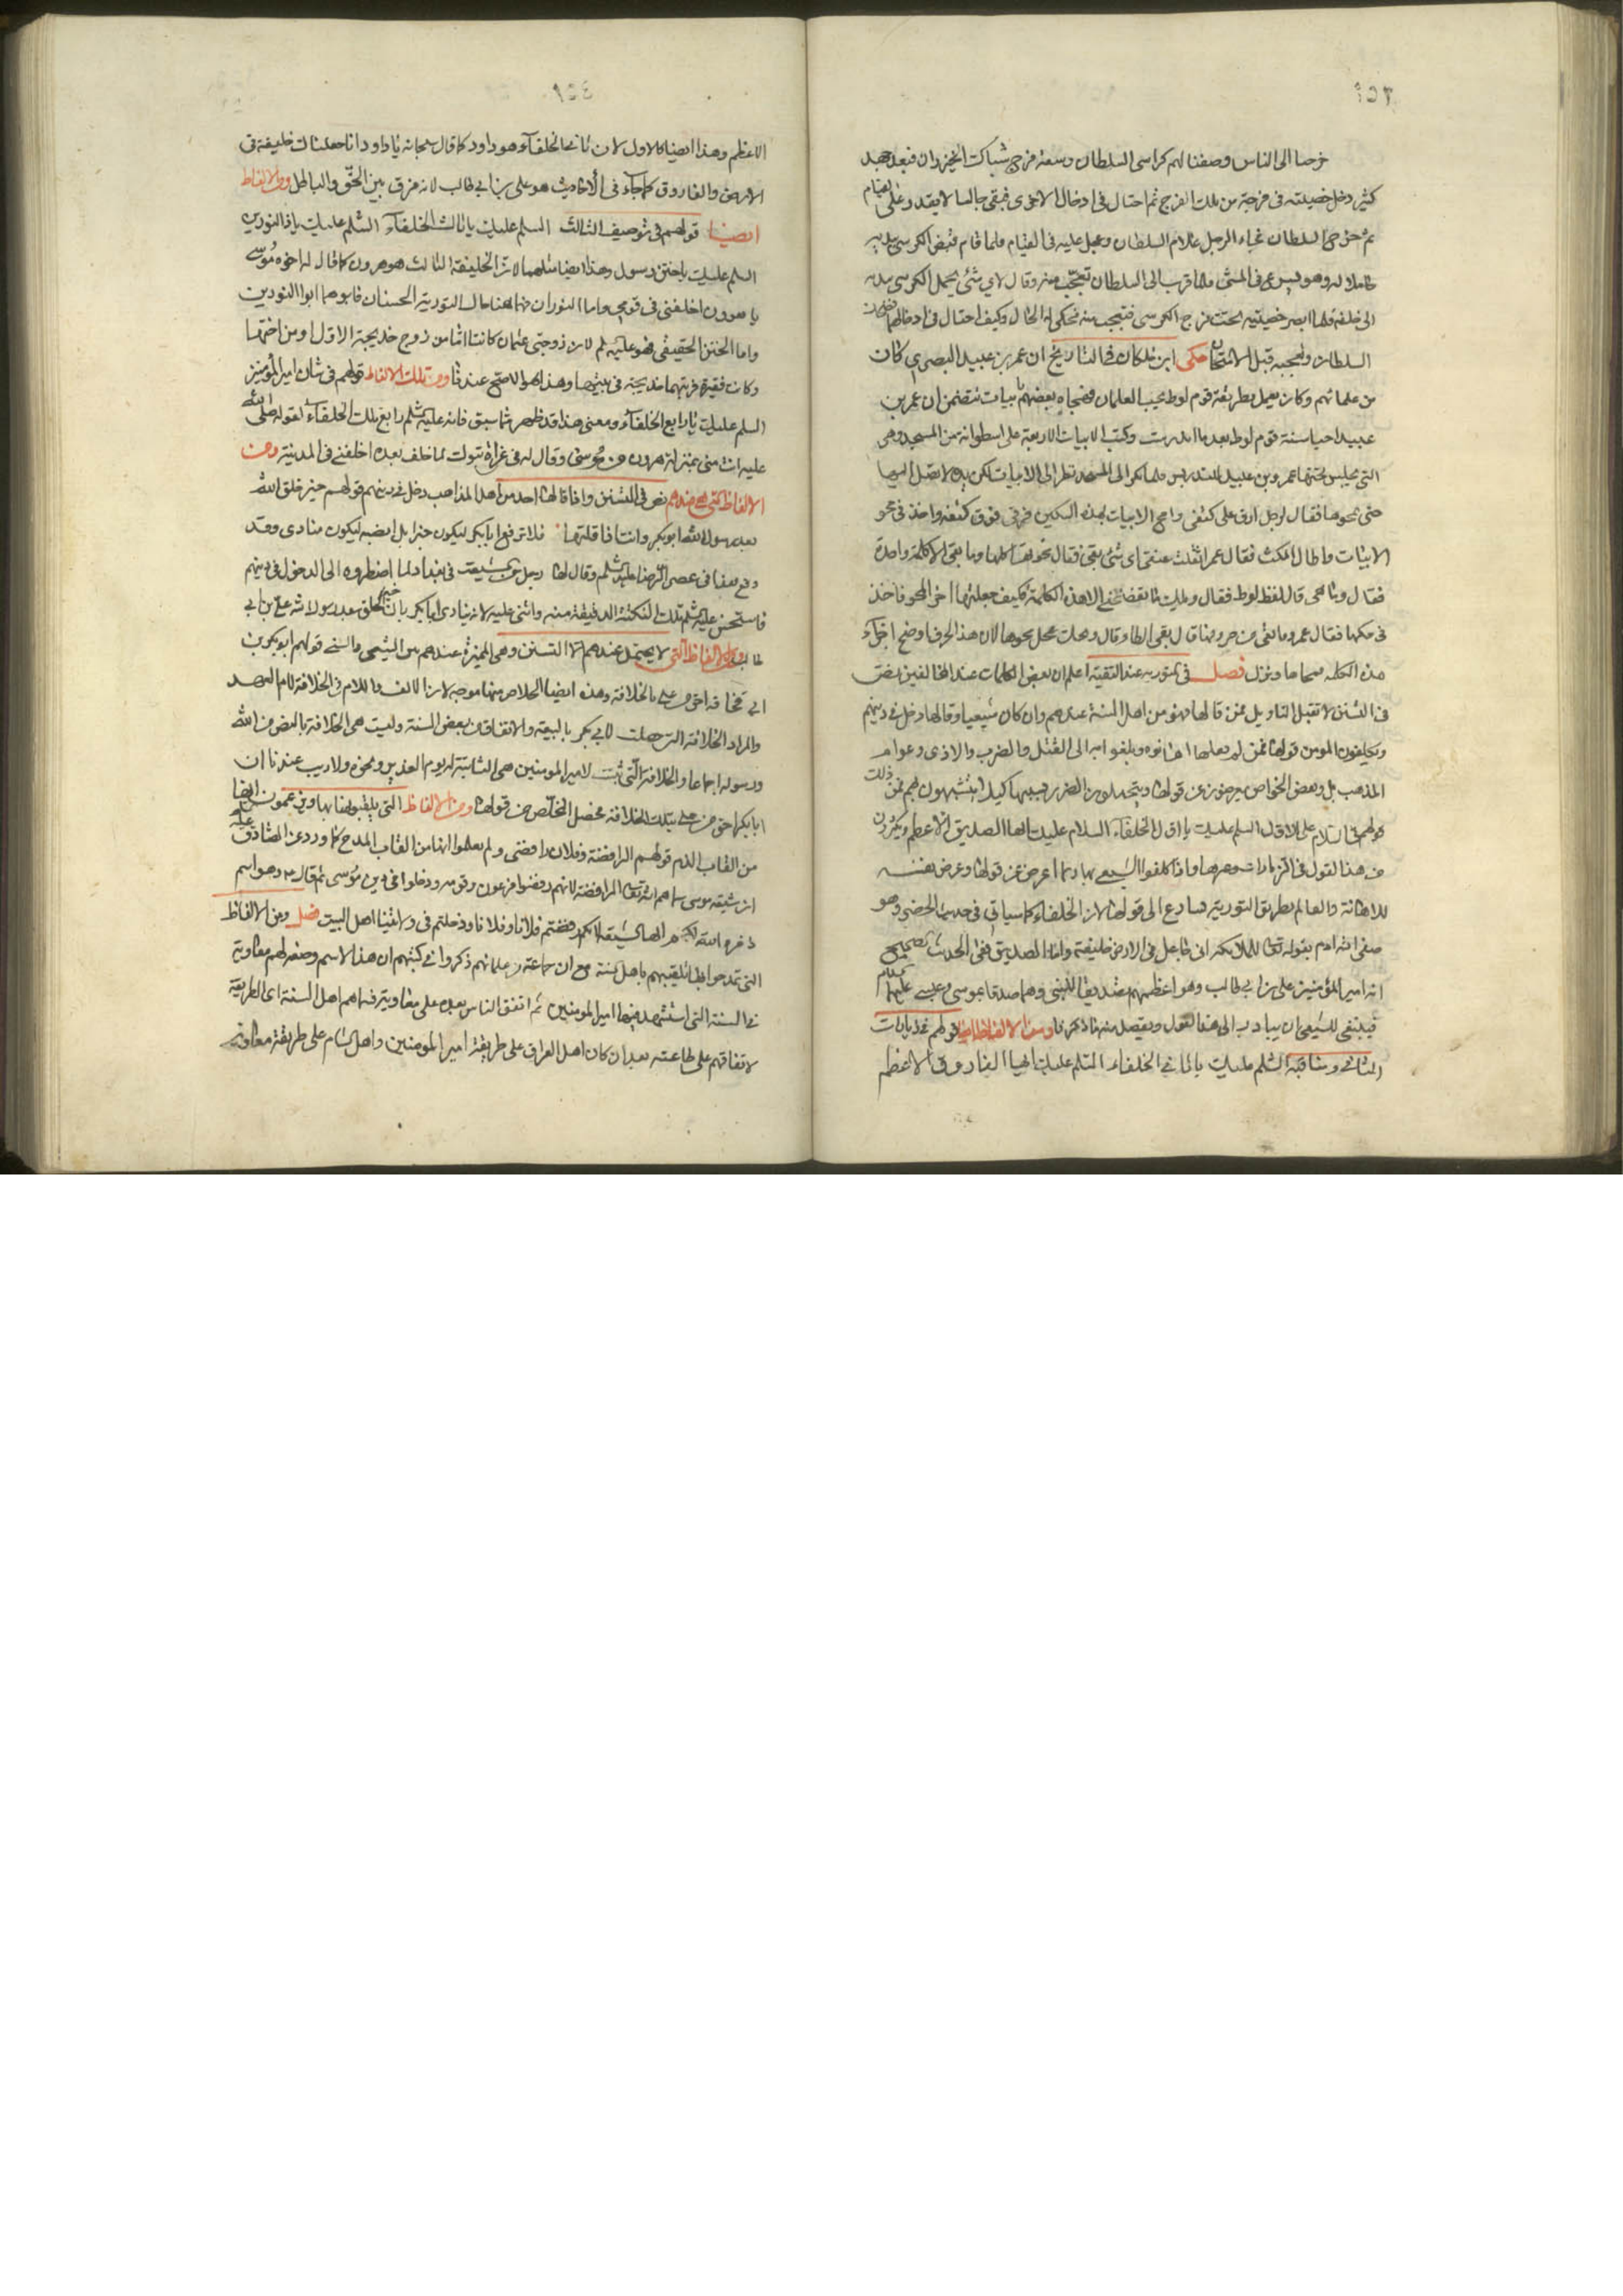 ٢٥٣
خرصا الى الناس وصفنا لهم كراسى السلطان وسعة فرج شباك الخيزران فبعد جهد
كثير دخل خصيته فى فرجة من تلك الفرج ثم احتال فى ادخال الاخرى فبقى جالسا لا يقدر على القيام
ثم خرج السلطان فجاء الرجل غلام السلطان وعجل عليه فى القيام فلما قام قبض الكرسى بيديه
حاملا له وهو يسرع فى المشى فلما قرب الى السلطان تعجب منه وقال لاى شئ يحمل الكرسى بيديه
الى خلفه فلما ابصر خصيتيه تحت فرج الكرسى فتعجب منه فحكى له الحال وكيف احتال فى ادخالهما
السلطان وتعجبه قبل الامتحان حكى ابن خلكان فى التاريخ ان عمر بن عبيد البصرى كان
من علمائهم وكان يعمل بطريقة قوم لوط يحب الغلمان فهجاه بعضهم بابيات تتضمن ان عمر بن
عبيد احيا سنة قوم لوط بعد ما اندرست وكتب الابيات الاربعة على اسطوانة من المسجد وهى
التى يجلس تحتها عمرو بن عبيد للتدريس فلما بكر الى المسجد نظر الى الابيات لكن يده لا تصل اليها
حتى يمحوها فقال لرجل ارق على كتفى وامح الابيات بهذه السكين فرقى فوق كتفه واخذ فى محو
الابيات واطال المكث فقال عمر اثقلت عنقى اى شئ بقى فقال محوتها كلها وما بقى الا كلمة واحدة
فقال وما هى قال لفظ لوط فقال ويلك ما تفضحنى الا هذه الكلمة فكيف جعلتها اخر المحو فاخذ
فى حكها فقال عمر وما بقى من حروفها قال بقى الطاء قال وعجل بمحوها لان هذا الحرف اوضح اجزاء
هذه الكلمة فمحاها ونزل فصل فى التورية عند التقية اعلم ان بعض الكلمات عند المخالفين نص
فى التسنن لا تقبل التاويل فمن قالها فهو من اهل السنة عندهم وان كان شيعيا وقالها دخل فى دينهم
ويكلفون المومن قولها فمن لم يفعلها اهانوه وبلغوا به الى القتل والضرب والاذى وعوام
المذهب بل وبعض الخواص يعرضون عن قولها ويتحملون الضرر بسببها كيلا يتشبهون بهم فمن ذلك
قولهم فى السلام على الاول السلم عليك يا اول الخلفاء السلام عليك ايها الصديق الاعظم ويكثرون
من هذا القول فى الزيارات وغيرها واذا كلفوا الشيعى بها ربما اعرض عن قولها وعرض نفسه
للاهانة والعالم بطريق التورية يسارع الى قولها لان الخلفاء كما سياتى فى حديث الخضر وهو
صفى الله ادم بقوله تعالى للملائكة انى جاعل فى الارض خليفة واما الصديق ففى الحديث الصحيح
انه امير المؤمنين على بن ابى طالب وهو اعظمهم تصديقا للنبى وهما صدقا بموسى وعيسى عليهما السلام
فينبغى للشيعى ان يبادر الى هذا القول ويقصد منه ما ذكرنا ومن الالفاظ ايضا قولهم فى زيارات
الثانى ومناقبه السلم عليك يا ثانى الخلفاء السلم عليك ايها الفاروق الاعظم
٢٥٤
الاعظم وهذا ايضا كالاول لان ثانى الخلفاء هو داود كما قال سبحانه يا داود انا جعلناك خليفة فى
الارض والفاروق كما جاء فى الأحاديث هو على بن ابى طالب لانه فرق بين الحق والباطل ومن الالفاظ
ايضا قولهم فى توصيف الثالث السلم عليك يا ثالث الخلفاء السلم عليك يا ذا النورين
السلم عليك يا ختن رسول وهذا ايضا مثلهما لان الخليفة الثالث هو هرون كما قال له اخوه موسى
يا هرون اخلفنى فى قومى واما النوران فهما هنا حال التورية الحسنان فابوهما ابو النورين
واما الختن الحقيقى فهو عليه السلم لان زوجتى عثمان كانتا اثنا من زوج خديجة الاول او من اختها
وكانت فقيرة فربتهما خديجة فى بيتها وهذا هو الاصح عندنا ومن تلك الالفاظ قولهم فى شان امير المؤمنين
السلم عليك يا رابع الخلفاء ومعنى هذا قد ظهر مما سبق فانه عليه السلم رابع تلك الخلفاء لقوله صلى الله
عليه انت منى بمنزلة هرون من موسى وقال له فى غزاة تبوك لما خلف بعده اخلفنى فى المدينة ومن
الالفاظ التى هى عندهم نص فى التسنن واذا قالها احد من اهل المذاهب دخل فى دينهم قولهم خير خلق الله
بعد رسول الله ابو بكر وانت اذا قلتها فلا ترفع ابا بكر ليكون خبرا بل انصبه ليكون منادى وقد
وقع هذا فى عصر الرضا عليه السلم وقال لها رجل من شيعته فى بغداد لما اضطروه الى الدخول فى دينهم
فاستحسن عليه السلم تلك النكتة الدقيقة منه واثنى عليه لانه ينادى ابا بكر بان خير الخلق بعد رسول الله على بن ابى
طالب ومن الالفاظ التى لا يحتمل عندهم الا التسنن وهى المميزة عندهم بين الشيعى والسنى قولهم ابو بكر بن
ابى قحافة احق من على بالخلافة وهذه ايضا الخلاص منها موجه لان الالف واللام فى الخلافة للام العهد
والمراد الخلافة التى حصلت لابى بكر بالبيعة والاتفاق من بعض السنة وليست هى الخلافة بالنص من الله
ورسوله اجماعا والخلافة التى ثبت لامير المومنين هى الثابتة له يوم الغدير ونحوه ولا ريب عندنا ان
ابا بكر احق من على بتلك الخلافة فحصل التخلص من قولها ومن الالفاظ التى يلقبونها بها ويزعمون انها
من القاب الذم قولهم الرافضة وفلان رافضى ولم يعلموا انها من القاب المدح كما ورد عن الصادق عليه السلم
ان شيعة موسى سماهم الله تعالى الرافضة لانهم رفضوا فرعون وقومه ودخلوا فى دين موسى ثم قال وهو اسم
ذخره الله لكم ايها الشيعة لانكم رفضتم فلانا وفلانا ودخلتم فى ولايتنا اهل البيت فصل ومن الالفاظ
التى تمدحوا بها تلقيبهم باهل السنة مع ان جماعة من علمائهم ذكروا فى كتبهم ان هذا الاسم وضعه لهم معاوية
فى السنة التى استشهد فيها امير المومنين ثم اتفق الناس بعده على معاوية فسماهم اهل السنة اى الطريقة
لاتفاقهم على طاعته بعد ان كان اهل العراق على طريقة امير المومنين واهل الشام على طريقة معاوية